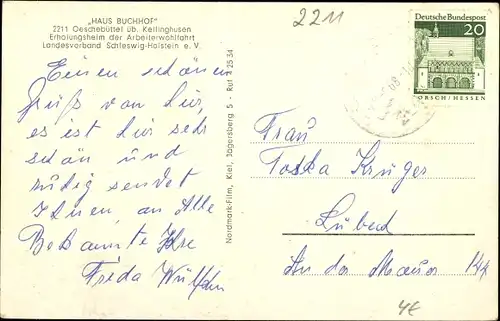 „HAUS BUCHHOF"
2211 Oeschebüttel üb. Kellinghusen
Erholungsheim der Arbeiterwohlfahrt
Landesverband Schleswig-Holstein e. V.
2211
Deutsche Bundespost
20
LORSCH/HESSEN
Einen schönen
Gruß von hier,
es ist hier sehr
schön und
ruhig sendet
Ihnen, an Alle
Bekannte Ihre
Frieda
Nordmark-Film, Kiel, Jägersberg 5 - Ruf 4 25 34
Frau
Toska Krüger
Lübeck
An der Mauer
4€